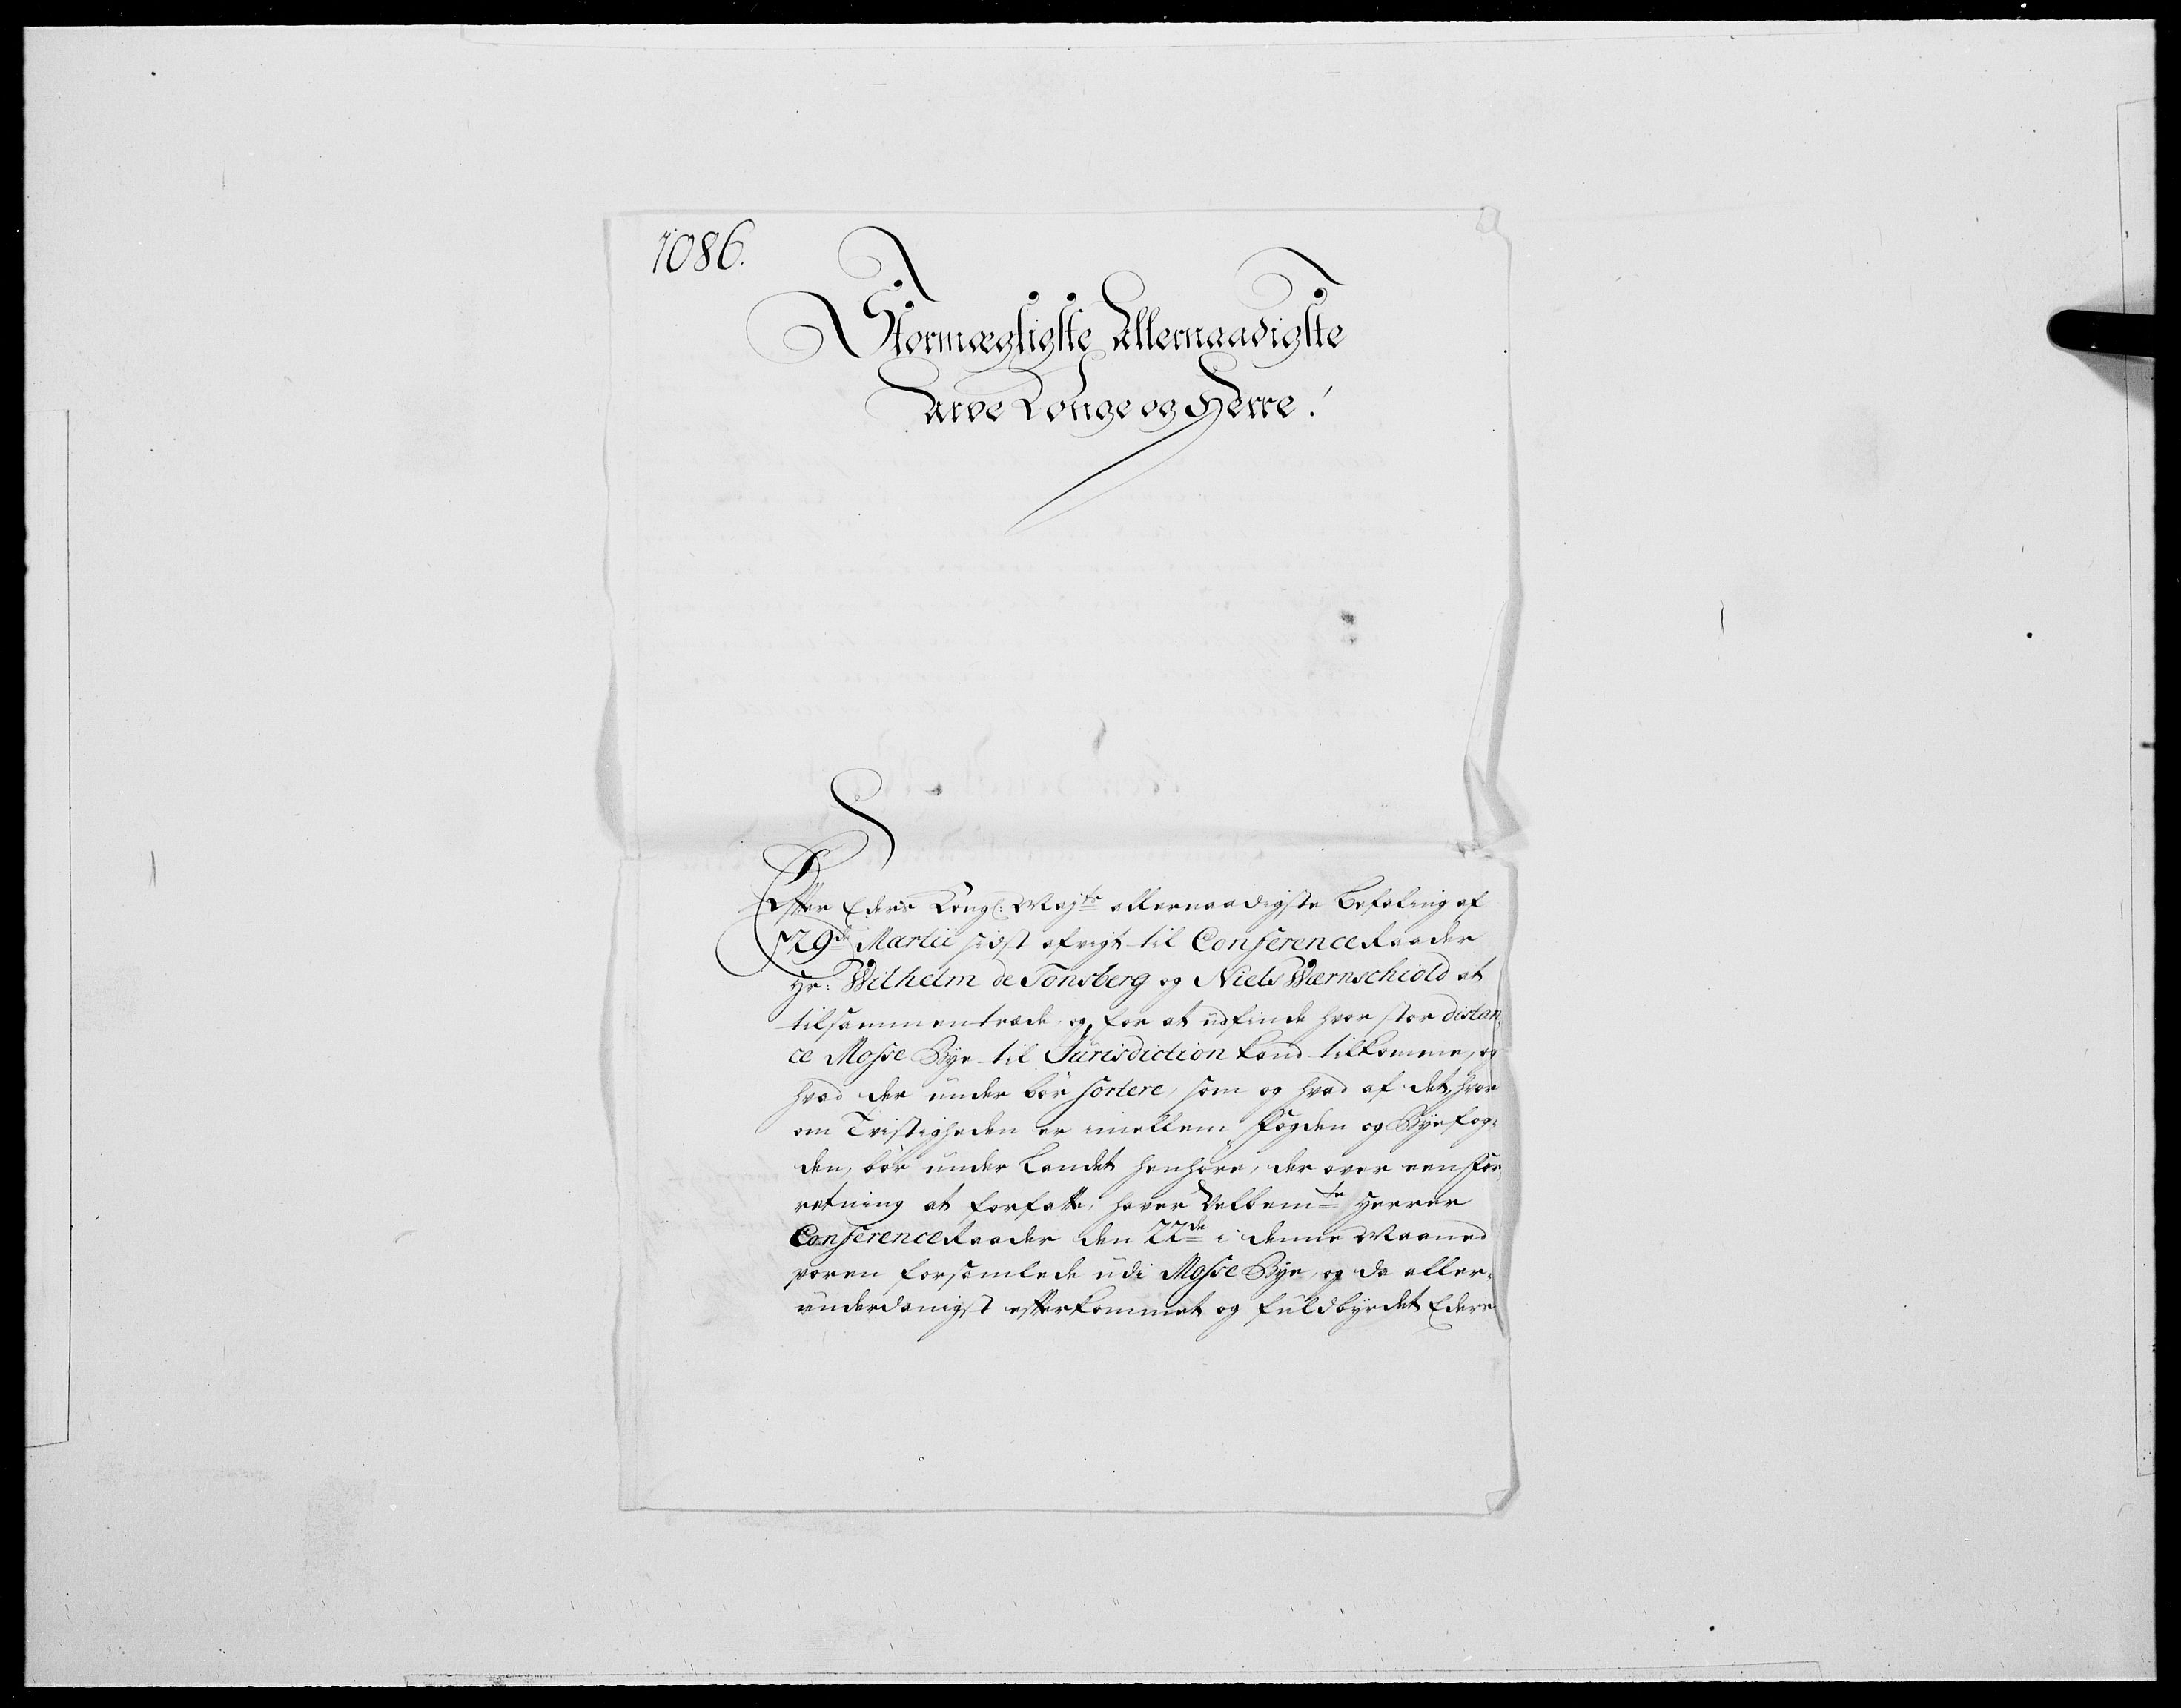 1086.
Stormægtigste Allernaadigste
Arve Konge og Herre!
Efter Eders Kongl: Majts allernaadigste Befaling af
29de Martii sidst afvigt til Conference Raader
Hr: Wilhelm de Tonsberg og Niels Wærnschiold at
tilsammentræde, og for at udfinde hvor stor distan-
ce Mosse Bye til Jurisdiction kand tilkomme, og
hvad der under bør sortere, som og hvad af det, hvor
om Tvistigheden er imellem Fogden og Byefog-
den, bør under Landet henhøre, der over een For-
retning at forfatte, haver Velbemte Herrer
Conference Raader den 22de i denne Maaned
voren forsamlede udi Mosse Bye, og da aller-
underdanigst efterkommet og fuldbyrdet Eders